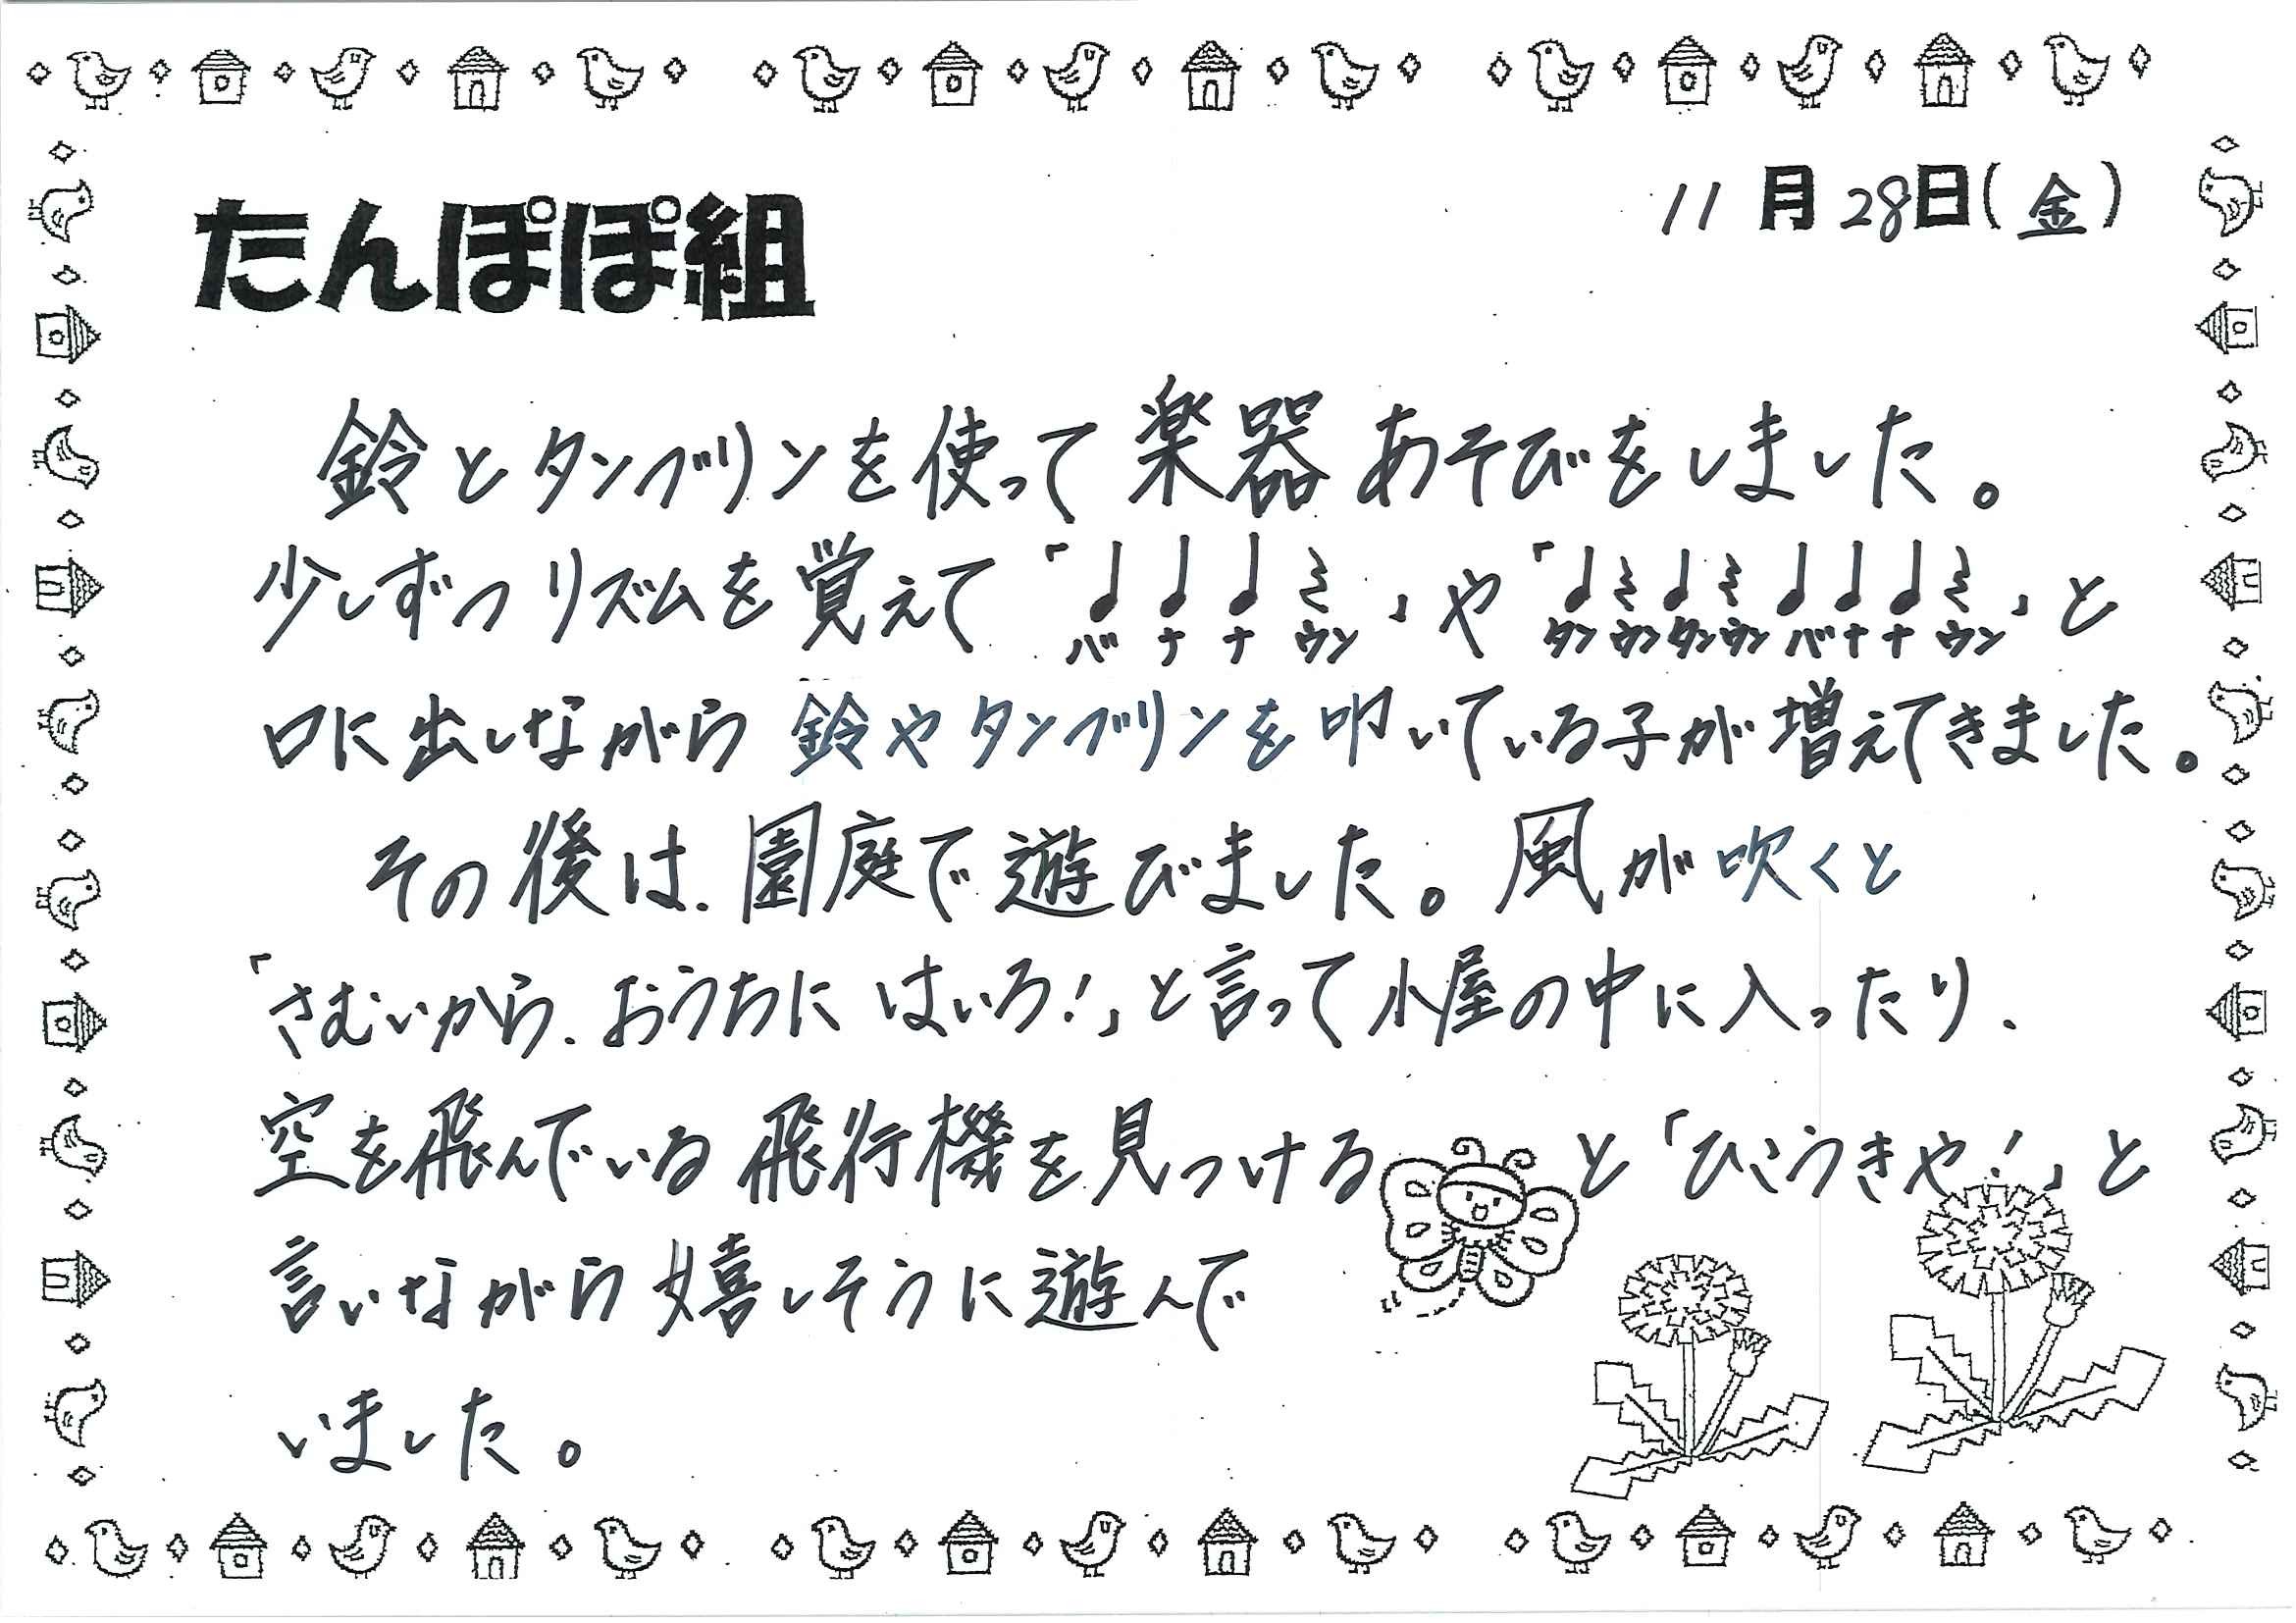 たんぽぽ組
11月28日(金)
鈴とタンブリンを使って楽器あそびをしました。
少しずつリズムを覚えて「♩♩♩𝄽」や「♩𝄽♩𝄽♩♩♩𝄽」と
バナナウン タンウンタンウンバナナウン
口に出しながら鈴やタンブリンを叩いている子が増えてきました。
その後は、園庭で遊びました。風が吹くと
「さむいから、おうちにはいろ!」と言って小屋の中に入ったり、
空を飛んでいる飛行機を見つけると「ひこうきや!」と
言いながら嬉しそうに遊んで
いました。